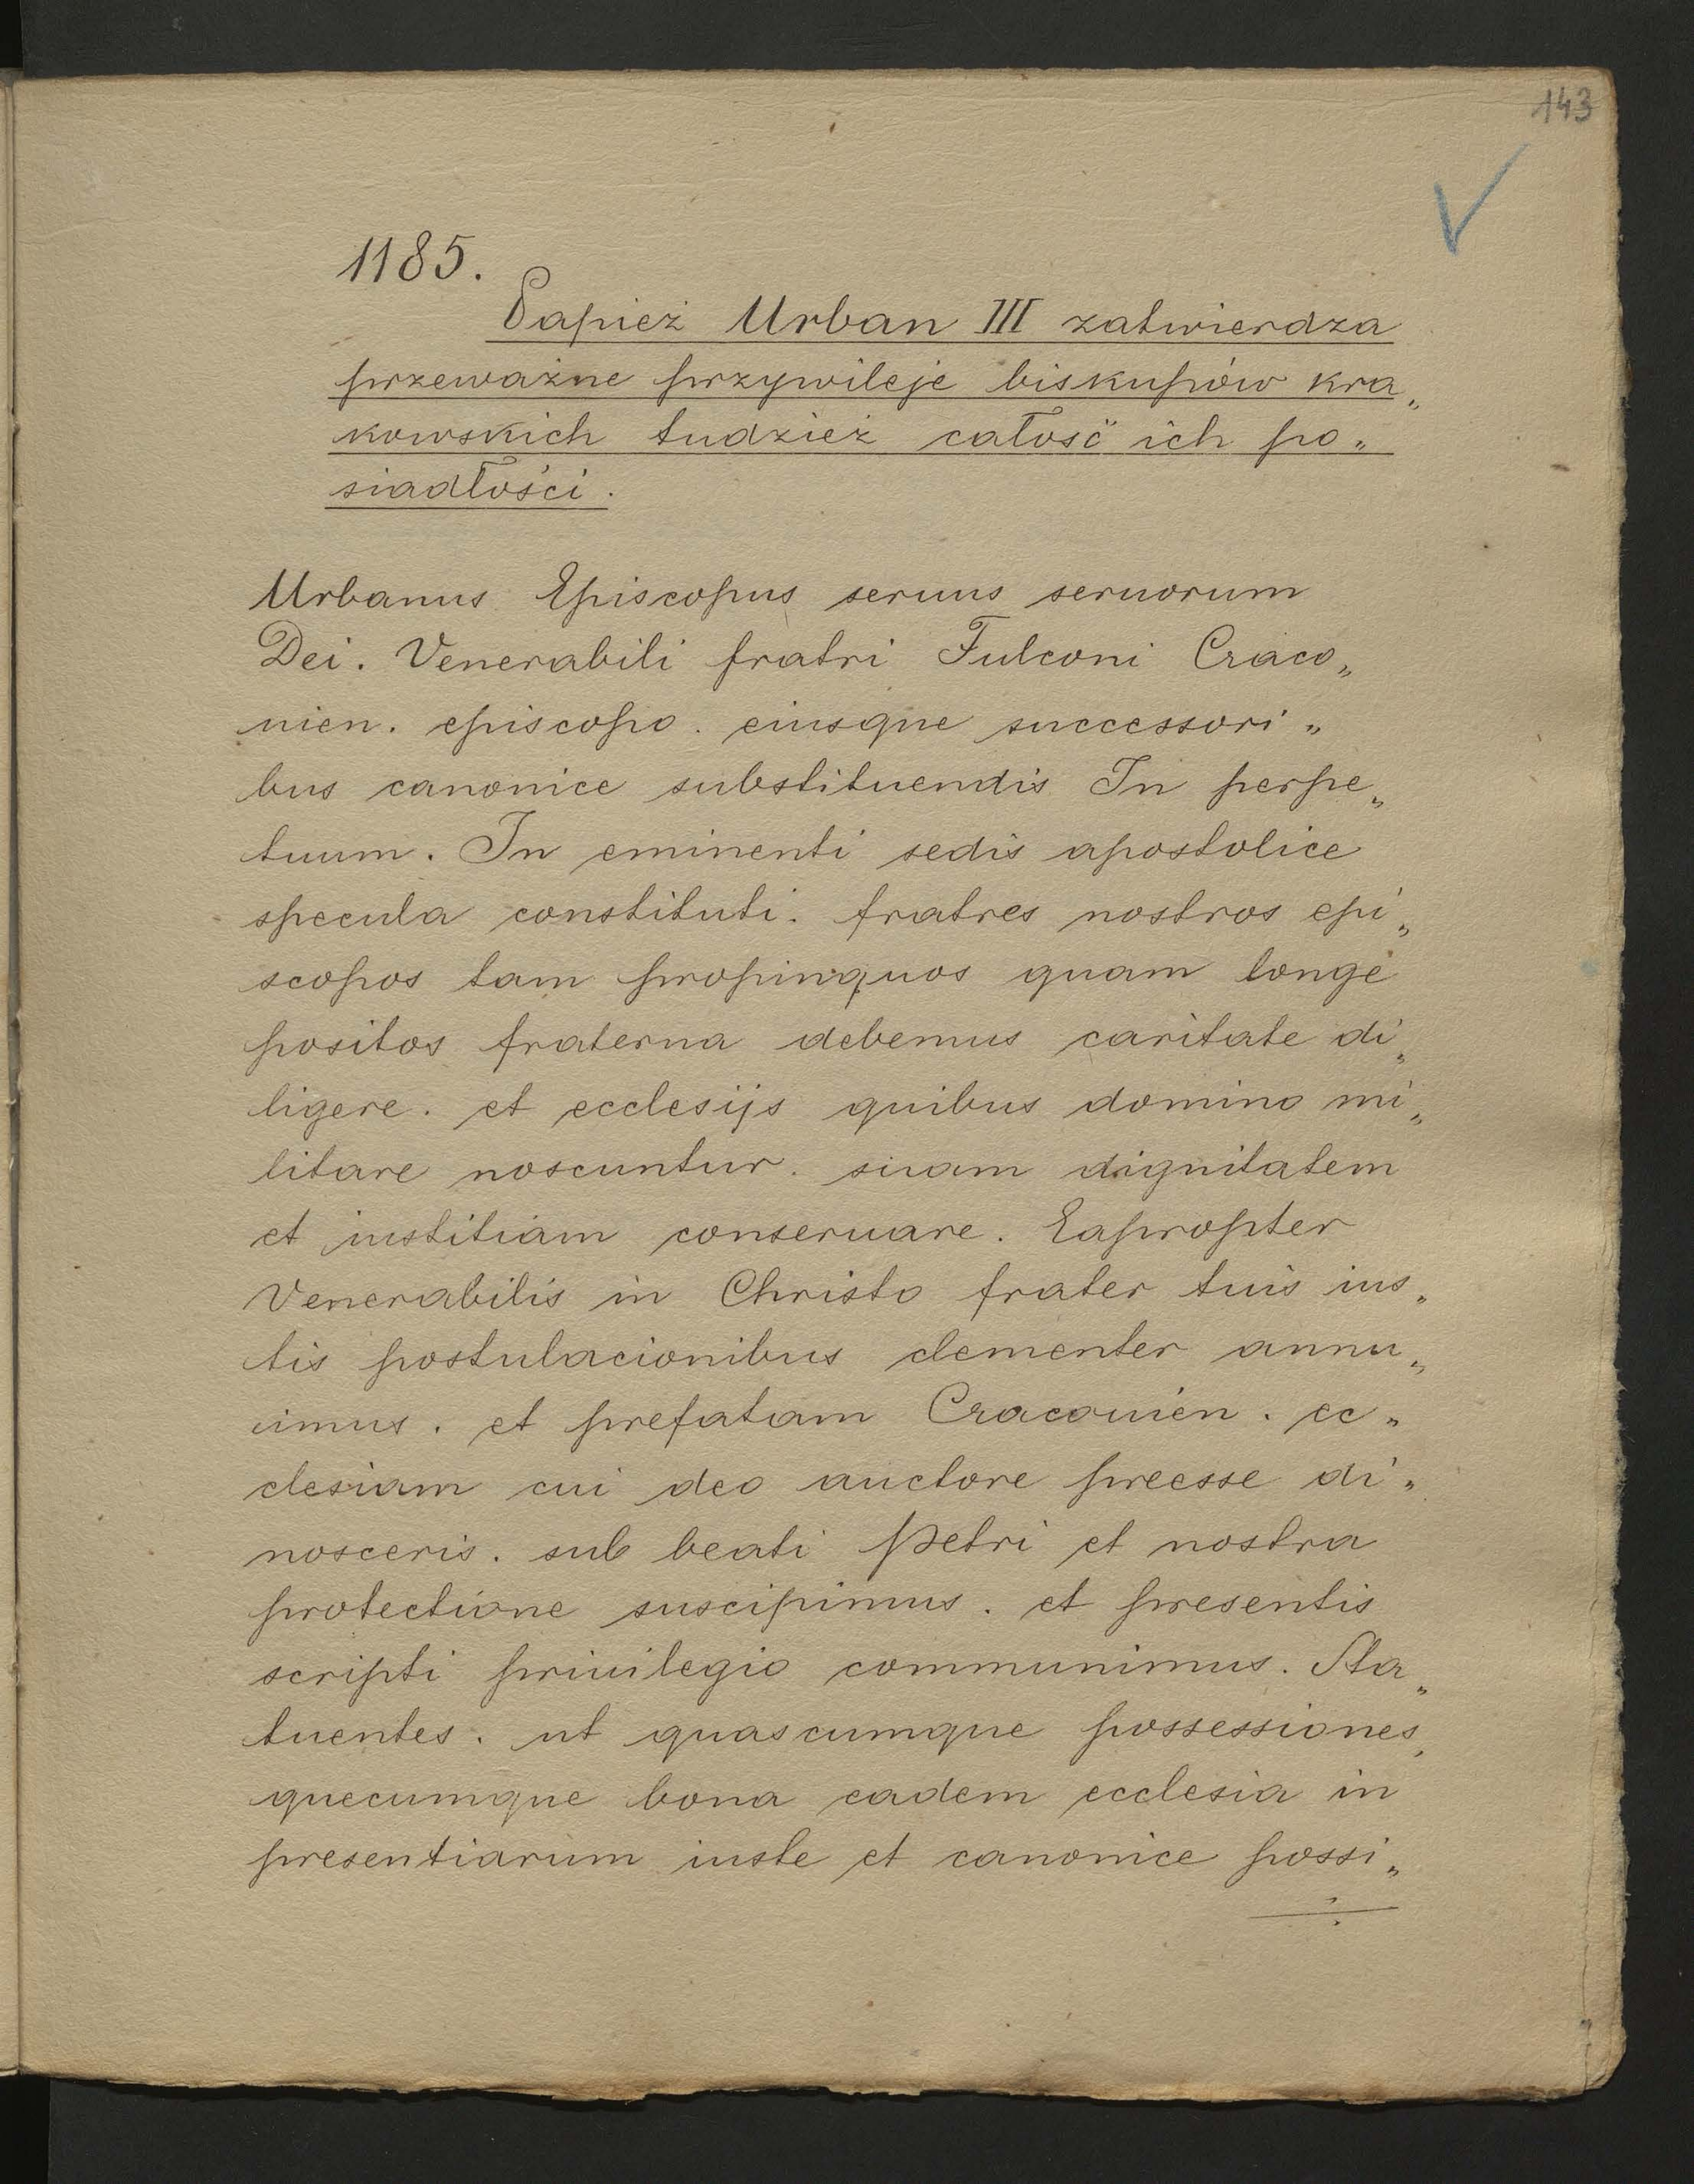 143
1185.
Papież Urban III zatwierdza
przeważne przywileje biskupów kra„
kowskich tudzież całość ich po„
siadłości.
Urbanus Episcopus seruus seruorum
Dei. Venerabili fratri Fulconi Craco„
nien. episcopo. eiusque successori„
bus canonice substituendis In perpe„
tuum. In eminenti sedis apostolice
specula constituti. fratres nostros epi„
scopos tam propinquos quam longe
positos fraterna debemus caritate di„
ligere. et ecclesijs quibus domino mi„
litare noscuntur. suam dignitatem
et iustitiam conseruare. Eapropter
Venerabilis in Christo frater tuis ius„
tis postulacionibus clementer annu„
imus. et prefatam Cracouien. ec„
clesiam cui deo auctore preesse di„
nosceris. sub beati Petri et nostra
protectione suscipimus. et presentis
scripti priuilegio communimus. Sta„
tuentes. ut quascumque possessiones,
quecumque bona eadem ecclesia in
presentiarum iuste et canonice possi„